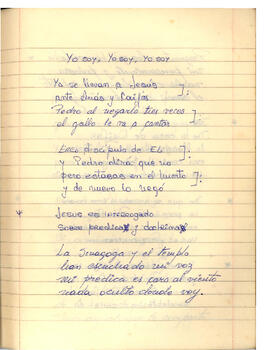 Yo soy, Yo soy, Yo soy
Ya se llevan a Jesús
ante Anás y Caifás
Pedro al negarlo tres veces
el gallo le va a cantar
Eres discípulo de El
y Pedro dirá que no
pero estabas en el huerto
y de nuevo lo negó
* Jesus es interrogado
sobre predica y doctrina
La Sinagoga y el templo
han escuchado mi voz
mi prédica es para al viento
nada oculto donde voy.